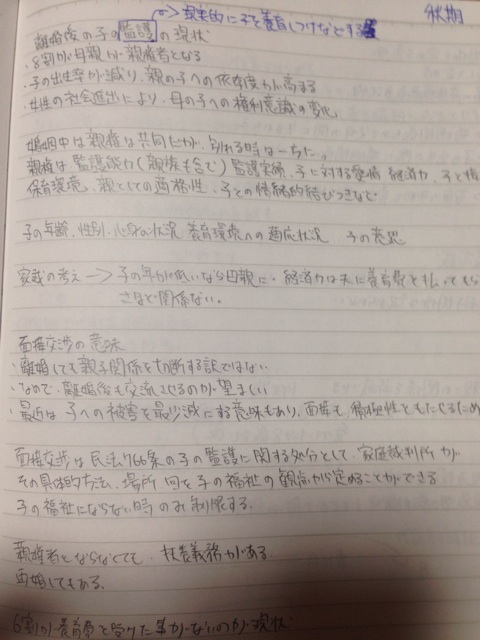 → 現実的に子を養育しつけなどする
秋期
離婚後の子の監護の現状
・8割が母親が親権者となる
・子の出生率が減り、親の子への依存度が高まる
・女性の社会進出により、母の子への権利意識の変化
婚姻中は親権は共同だが、別れる時は一方だ。
親権は監護能力(親族も含む)監護実績、子に対する愛情 経済力、子と
保育環境、親としての適格性、子との情緒的結びつきなど
子の年齢、性別、心身の状況 養育環境への適応状況 子の意思
家裁の考え → 子の年が低いなら母親に。経済力は夫に養育費を払ってもら
さほど関係ない。
面接交渉の意味
・離婚しても親子関係を切断する訳ではない
・なので、離婚後も交流させるのが望ましい
・最近は、子への被害を最少減にする意味もあり、面接も積極性をもたせるため
面接交渉は民法766条の子の監護に関する処分として、家庭裁判所が
その具体的方法、場所、回を子の福祉の観点から定めることができる
子の福祉にならない時のみ制限する。
親権者とならなくても、扶養義務がある。
再婚してもある。
6割が養育費を受けた事がないのが現状